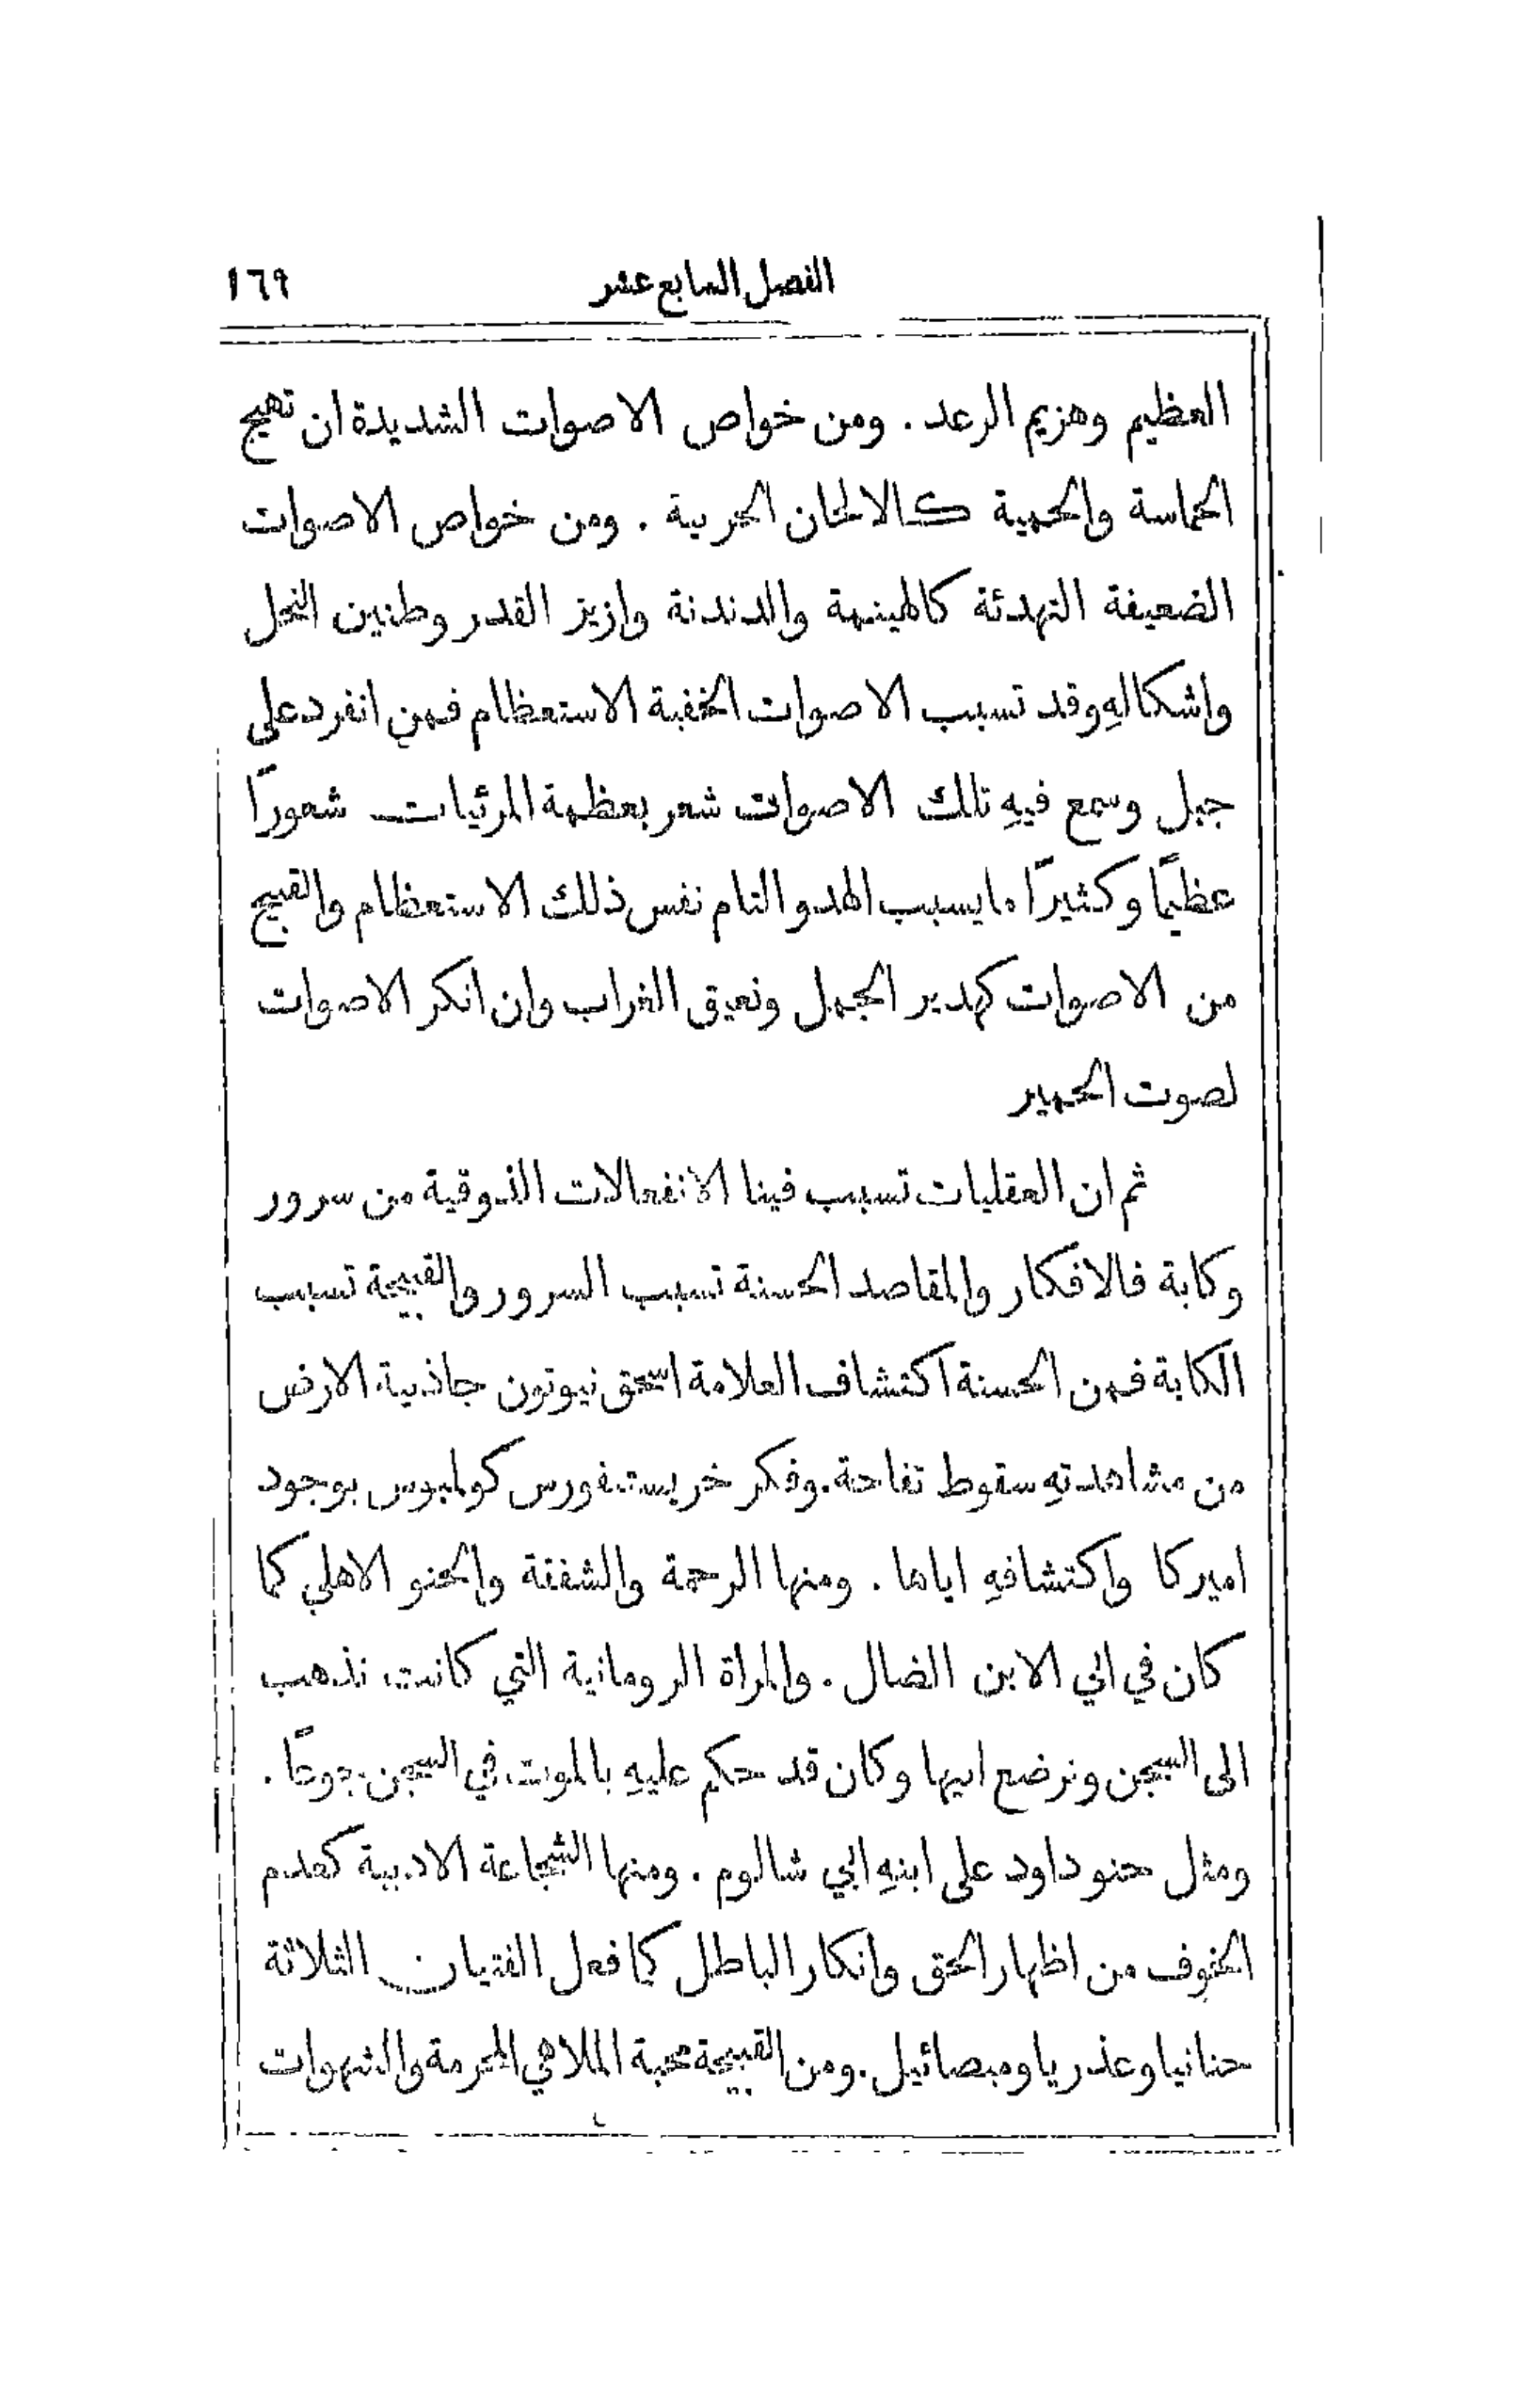 الفصل السابع عشر ١٦٩
العظيم وهزيم الرعد. ومن خواص الاصوات الشديدة ان تهيج
الحماسة والحمية كالالحان الحربية. ومن خواص الاصوات
الضعيفة التهدئة كالهينمة والدندنة وازيز القدر وطنين النحل
واشكالهِ وقد تسبب الاصوات الخفية الاستعظام فمن انفرد على
جبل وسمع فيهِ تلك الاصوات شعر بعظمة المرئيات شعورًا
عظيمًا وكثيرًا ما يسبب الهدو التام نفس ذلك الاستعظام والقبيح
من الاصوات كهدير الجمل ونعيق الغراب وان انكر الاصوات
لصوت الحمير
ثم ان العقليات تسبب فينا الانفعالات الذوقية من سرور
وكابة فالافكار والمقاصد الحسنة تسبب السرور والقبيحة تسبب
الكابة فمن الحسنة اكتشاف العلامة اسحق نيوتون جاذبية الارض
من مشاهدتهِ سقوط تفاحة. وفكر خريستفورس كولمبوس بوجود
اميركا واكتشافهِ اياها. ومنها الرحمة والشفقة والحنو الاهلي كما
كان في ابي الابن الضال. والمراة الرومانية التي كانت تذهب
الى السجن وترضع ابيها وكان قد حكم عليهِ بالموت في السجن جوعًا.
ومثل حنو داود على ابنهِ ابي شالوم. ومنها الشجاعة الادبية كعدم
الخوف من اظهار الحق وانكار الباطل كما فعل الفتيان الثلاثة
حنانيا وعذريا وميصائيل. ومن القبيحة محبة الملاهي المحرمة والشهوات